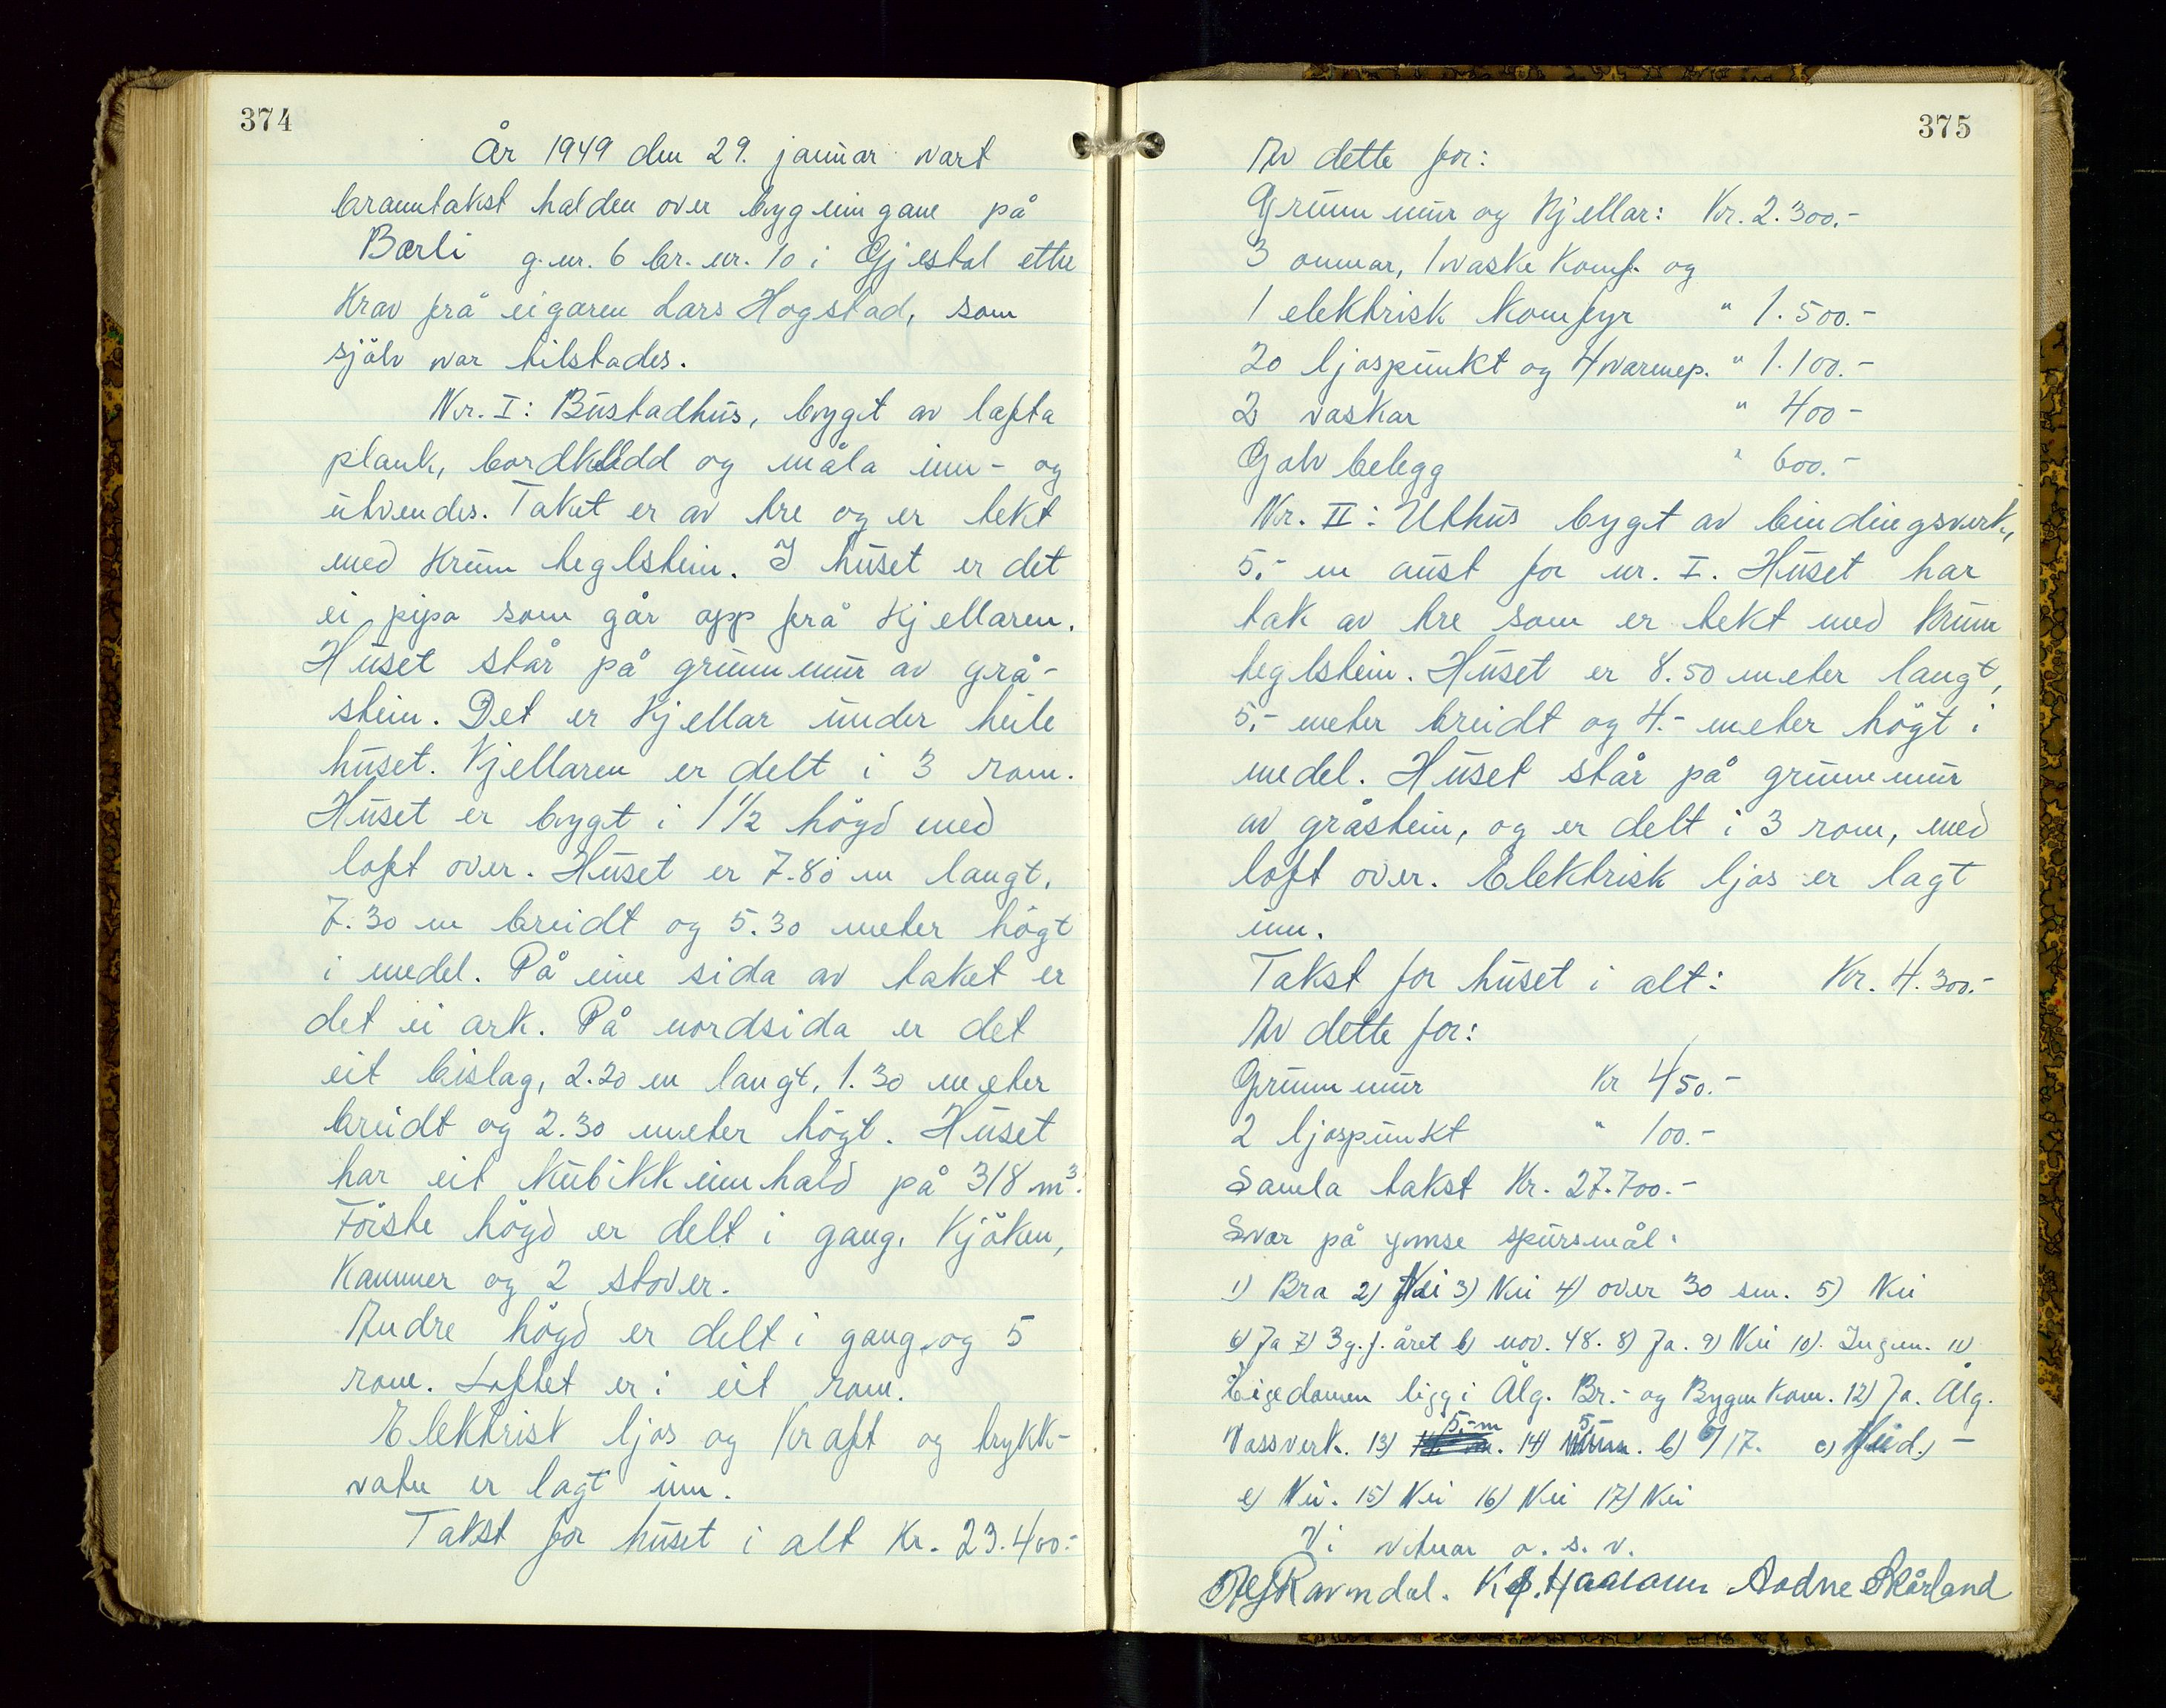 374
År 1949 den 29. januar vart
branntakst halden over bygningane på
Bærli g.nr. 6 br. nr. 10 i Gjestal etter
krav frå eigaren Lars Hogstad, som
sjölv var tilstades.
Nr. I: Bustadhus, bygt av lafta
plank, bordkledd og måla inn- og
utvendes. Taket er av tre og er tekt
med krum teglstein. I huset er det
ei pipa som går opp frå kjellaren.
Huset står på grunnmur av grå-
stein. Det er kjellar under heile
huset. Kjellaren er delt i 3 rom.
Huset er bygt i 1 1/2 högd med
loft over. Huset er 7.80 m langt,
7.30 m breidt og 5.30 meter högt
i medel. På eine sida av taket er
det ei ark. På nordsida er det
eit bislag, 2.20 m langt, 1.30 meter
breidt og 2.30 meter högt. Huset
har eit kubikkinnhald på 318 m³.
Förste högd er delt i gang, kjöken,
kammer og 2 stover.
Andre högd er delt i gang og 5
rom. Loftet er i eit rom.
Elektrisk ljos og kraft og trykk-
vatn er lagt inn.
Takst for huset i alt Kr. 23.400.-
375
Av dette for:
Grunnmur og kjellar: Kr. 2.300.-
3 omnar, 1 vaske komf. og
1 elektrisk komfyr " 1.500.-
20 ljospunkt og 4 varmep. " 1.100.-
2 vaskar " 400-
Golvbelegg " 600.-
Nr. II: Uthus bygt av bindingsverk,
5.- m aust for nr. I. Huset har
tak av tre som er tekt med krum
teglstein. Huset er 8.50 meter langt,
5.- meter breidt og 4.- meter högt i
medel. Huset står på grunnmur
av gråstein, og er delt i 3 rom, med
loft over. Elektrisk ljos er lagt
inn.
Takst for huset i alt: Kr. 4.300.-
Av dette for:
Grunnmur Kr 450.-
2 ljospunkt " 100.-
Samla takst Kr. 27.700.-
Svar på ymse spursmål.
1) Bra 2) Nei 3) Nei 4) over 30 sm. 5) Nei
6) Ja 7) 3 g. f. året b) nov. 48. 8) Ja. 9) Nei 10). Ingen. 11)
Eigedomen ligg i Ålg. Br.- og Bygn kom. 12) Ja. Ålg.
Vassverk. 13) 5,-m 14) 5,- b) 6/17. c) Nei d.) -
e) Nei. 15) Nei 16) Nei 17) Nei
Vi vitnar o. s. v.
Ravndal. Haaland Aadne Skårland